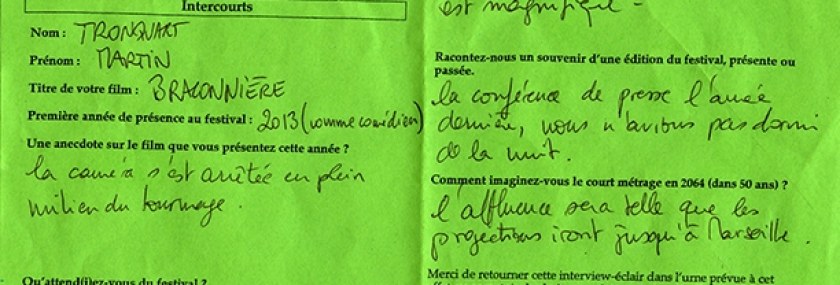 Intercourts
Nom : TRONQUART
Prénom : MARTIN
Titre de votre film : BRACONNIÈRE
Première année de présence au festival : 2013 (comme comédien)
Une anecdote sur le film que vous présentez cette année ?
la caméra s'est arrêtée en plein
milieu du tournage.
Qu'attend(i)ez-vous du festival ?
est magnifique -
Racontez-nous un souvenir d'une édition du festival, présente ou
passée.
la conférence de presse l'année
dernière, nous n'avions pas dormi
de la nuit.
Comment imaginez-vous le court métrage en 2064 (dans 50 ans) ?
l'affluence sera telle que les
projections iront jusqu'à Marseille.
Merci de retourner cette interview-éclair dans l'urne prévue à cet